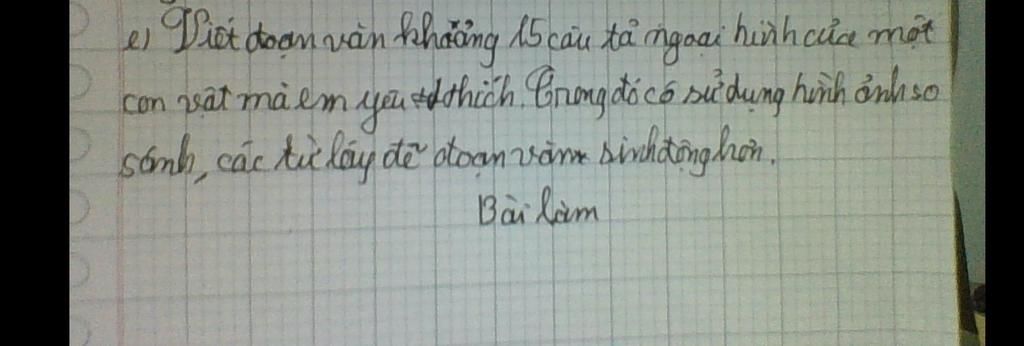 e) Viết đoạn văn khoảng 15 câu tả ngoại hình của một
con vật mà em yêu thích. Trong đó có sử dụng hình ảnh so
sánh, các từ láy để đoạn văn sinh động hơn.
Bài làm